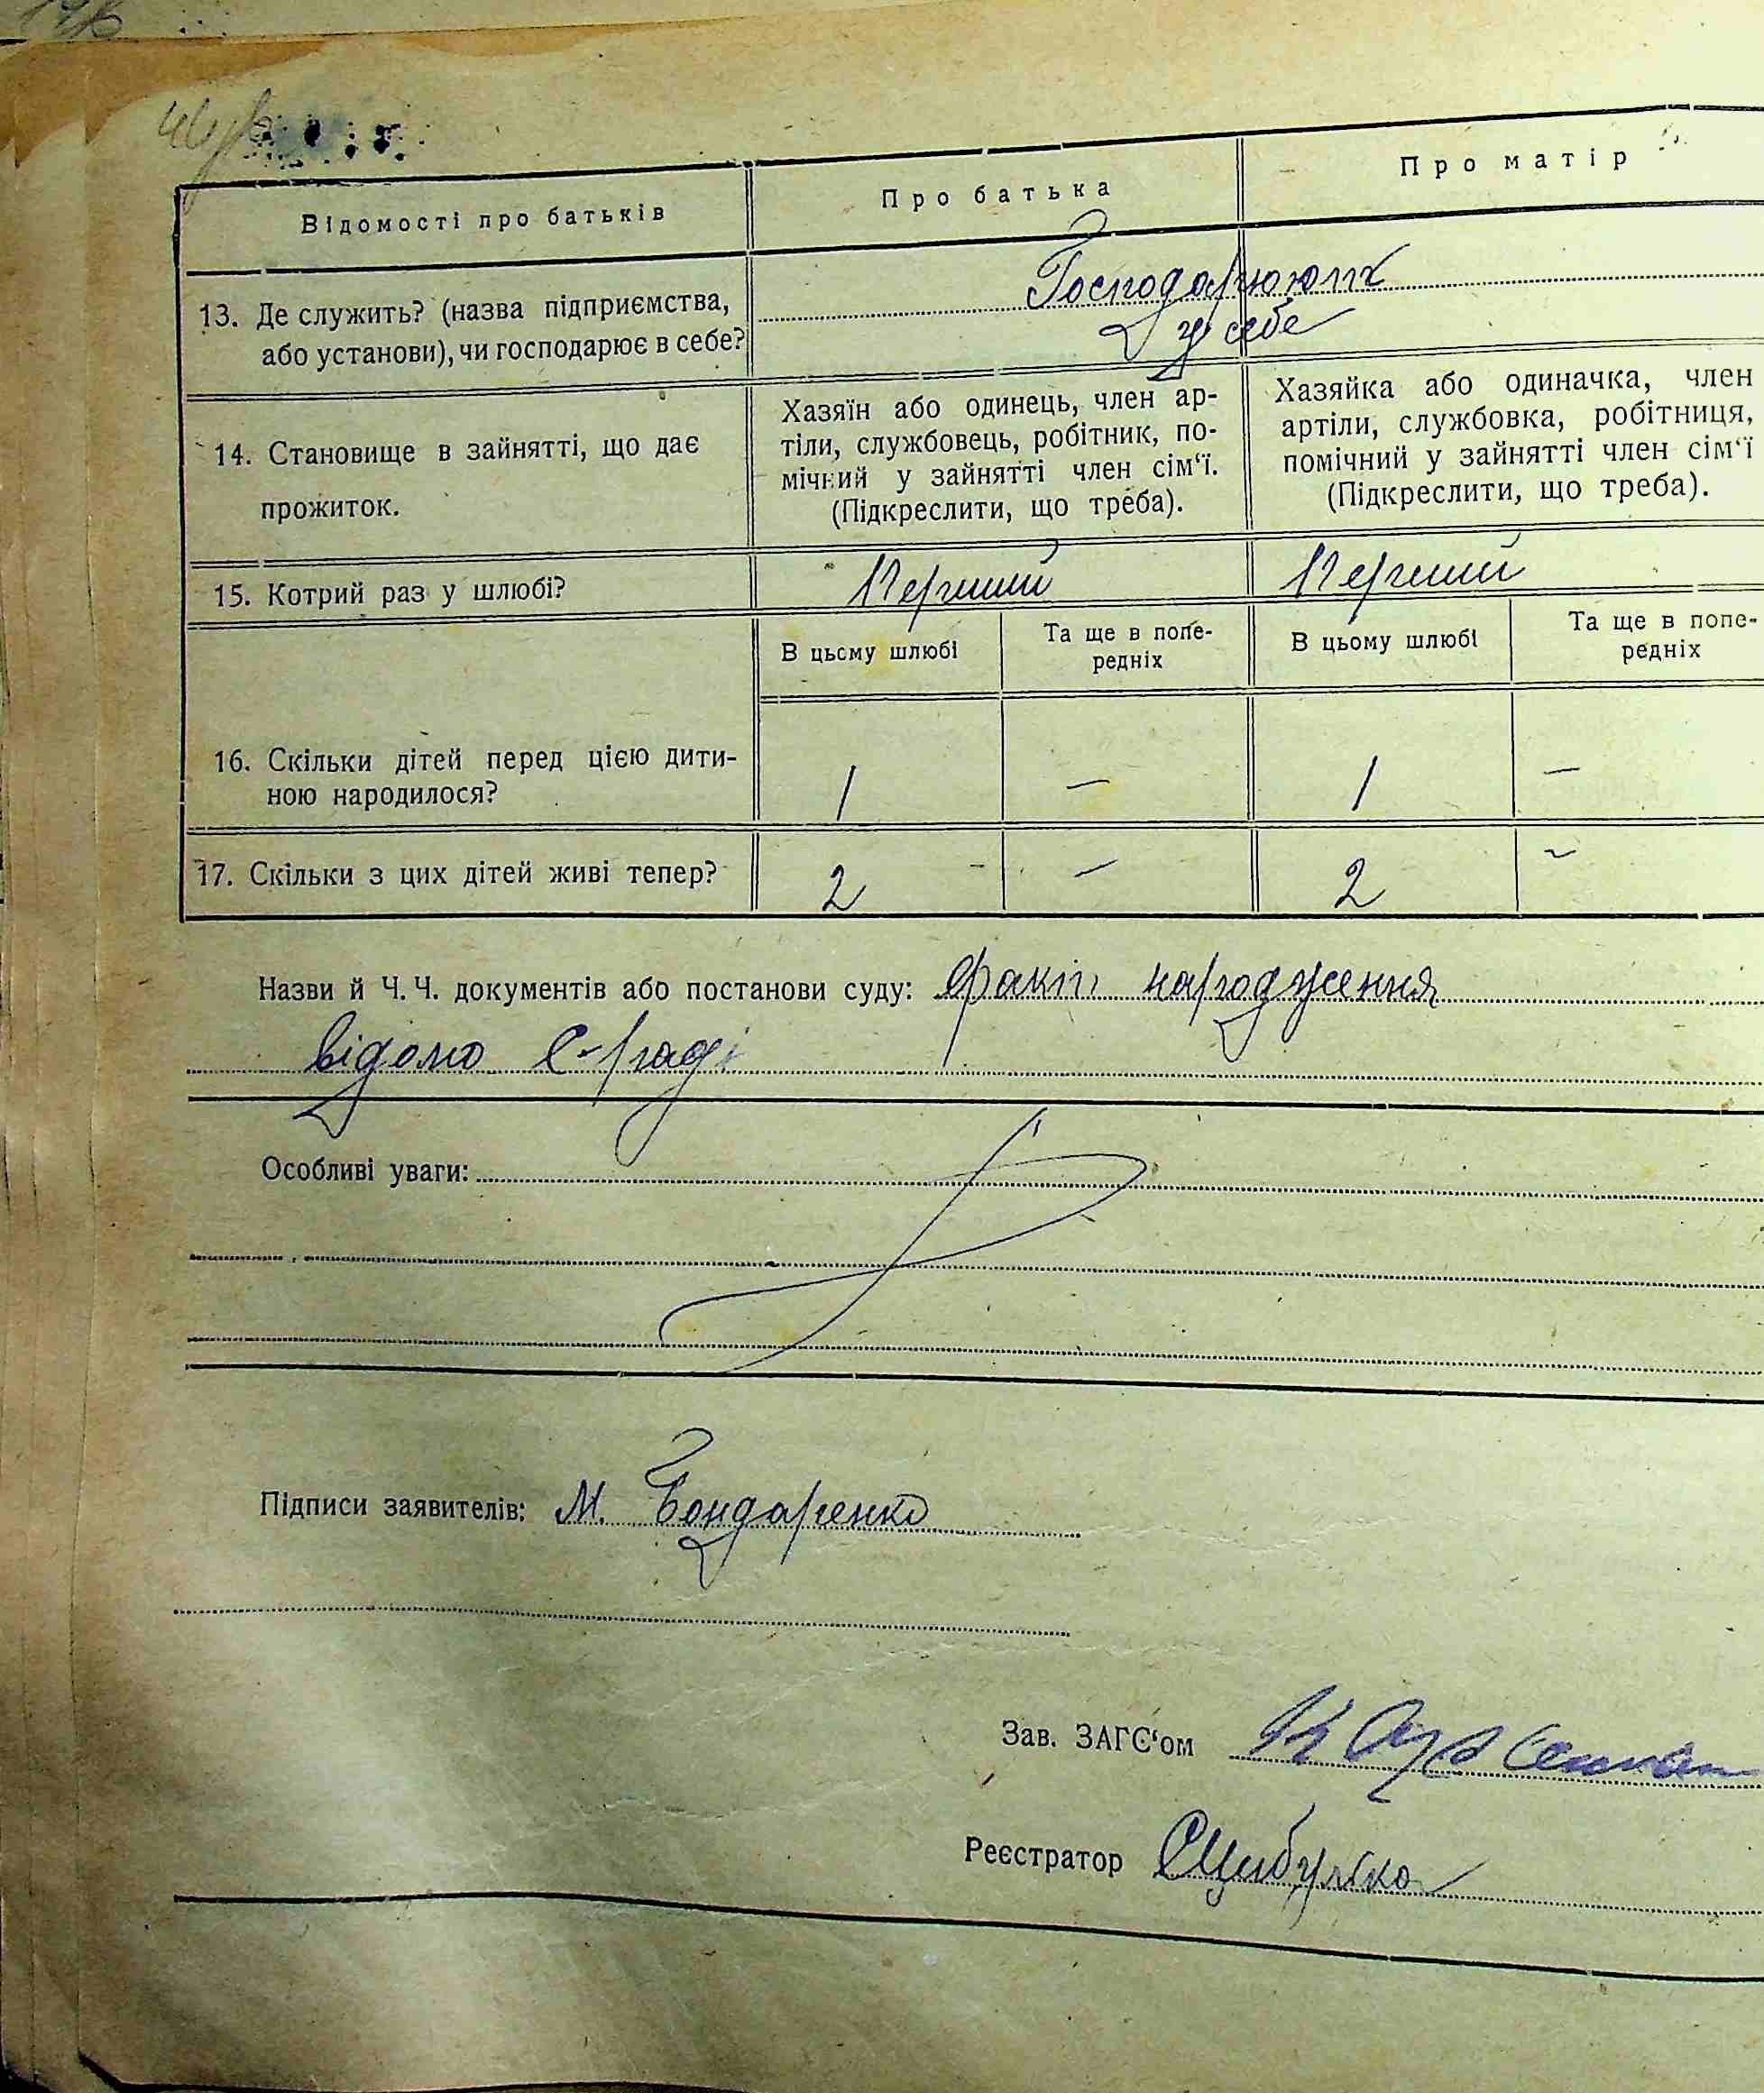 Відомості про батьків
Про батька
Про матір
13. Де служить? (назва підприємства,
або установи), чи господарює в себе?
Господарюють
у себе
14. Становище в зайнятті, що дає
прожиток.
Хазяїн або одинець, член ар-
тіли, службовець, робітник, по-
мічний у зайнятті член сім‘ї.
(Підкреслити, що треба).
Хазяйка або одиначка, член
артіли, службовка, робітниця,
помічний у зайнятті член сім‘ї
(Підкреслити, що треба).
15. Котрий раз у шлюбі?
Перший
Перший
В цьому шлюбі
Та ще в попе-
редніх
В цьому шлюбі
Та ще в попе-
редніх
16. Скільки дітей перед цією дити-
ною народилося?
1 — 1 —
17. Скільки з цих дітей живі тепер?
2 — 2 —
Назви й Ч. Ч. документів або постанови суду: факт народження
відомо С-раді
Особливі уваги:
Підписи заявителів: М. Бондаренко
Зав. ЗАГС‘ом
Реєстратор Цибулько